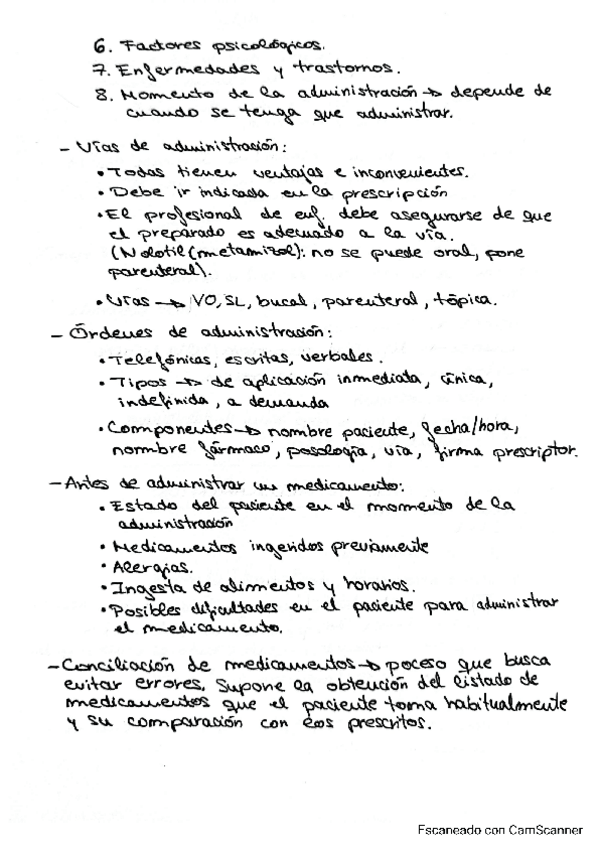 6. Factores psicológicos.
7. Enfermedades y trastornos.
8. Momento de la administración → depende de
cuando se tenga que administrar.
- Vías de administración:
• Todas tienen ventajas e inconvenientes.
• Debe ir indicada en la prescripción
• El profesional de enf. debe asegurarse de que
el preparado es adecuado a la vía.
(Nolotil (metamizol): no se puede oral, pone
parenteral).
• Vías → VO, SL, bucal, parenteral, tópica.
- Órdenes de administración:
• Telefónicas, escritas, verbales.
• Tipos → de aplicación inmediata, única,
indefinida, a demanda
• Componentes → nombre paciente, fecha/hora,
nombre fármaco, posología, vía, firma prescriptor.
- Antes de administrar un medicamento:
• Estado del paciente en el momento de la
administración
• Medicamentos ingeridos previamente
• Alergias.
• Ingesta de alimentos y horarios.
• Posibles dificultades en el paciente para administrar
el medicamento.
- Conciliación de medicamentos → poceso que busca
evitar errores. Supone la obtención del listado de
medicamentos que el paciente toma habitualmente
y su comparación con los prescritos.
Escaneado con CamScanner